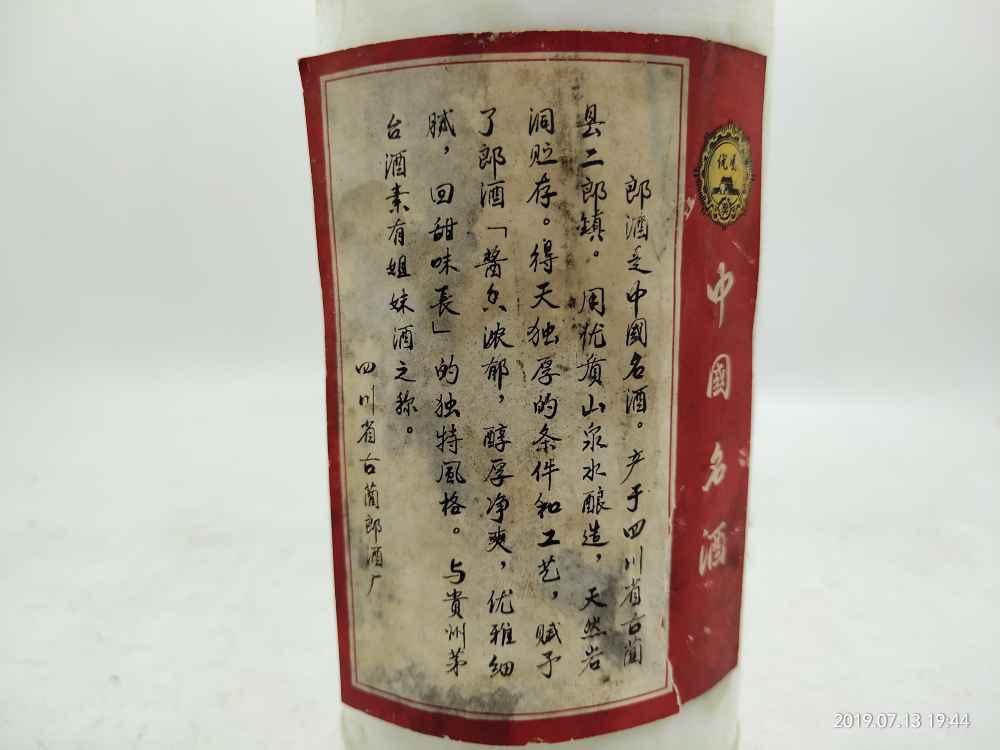 郎酒是中國名酒。产于四川省古蔺
县二郎镇。用优质山泉水酿造，天然岩
洞贮存。得天独厚的条件和工艺，赋予
了郎酒「醬香浓郁，醇厚净爽，优雅细
腻，回甜味長」的独特風格。与貴州茅
台酒素有姐妹酒之称。
四川省古蔺郎酒厂
优
中國名酒
2019.07.13 19:44